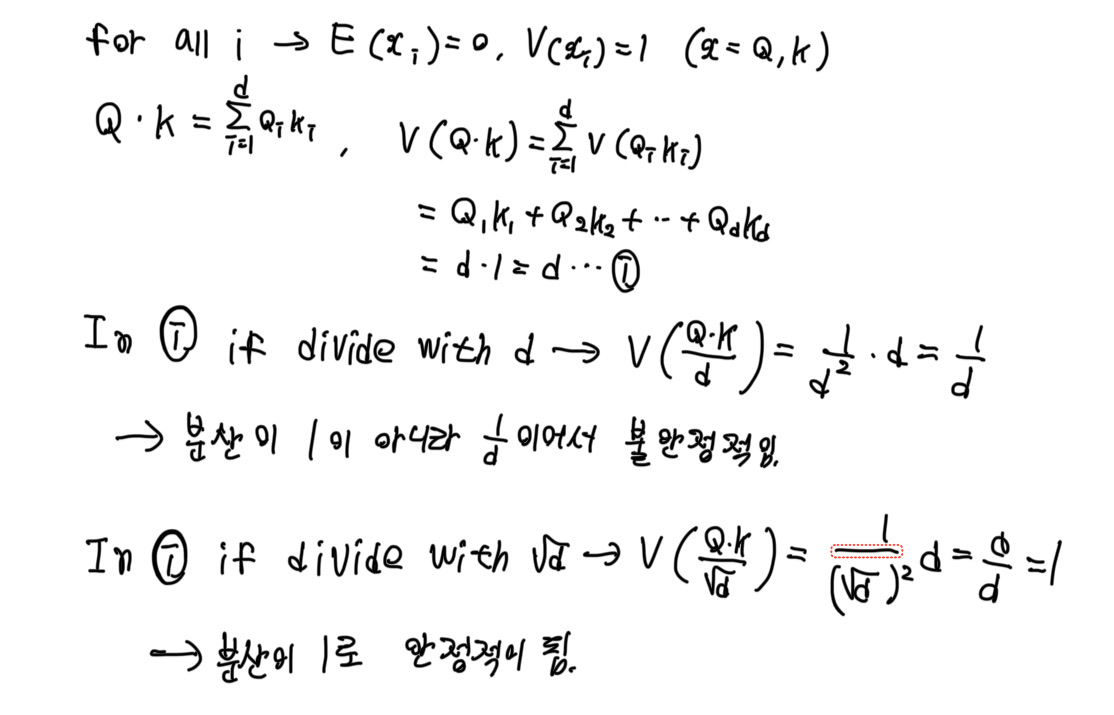 for all i → E(x_i)=0, V(x_i)=1 (x=Q,K)
Q·K = Σ_{i=1}^{d} Q_i K_i , V(Q·K) = Σ_{i=1}^{d} V(Q_i K_i)
= Q_1K_1 + Q_2K_2 + ⋯ + Q_dK_d
= d·1 = d ⋯ ①
In ① if divide with d → V(Q·K/d) = 1/d² · d = 1/d
→ 분산이 1이 아니라 1/d 이어서 불안정적임.
In ① if divide with √d → V(Q·K/√d) = 1/(√d)² d = d/d = 1
→ 분산이 1로 안정적이 됨.